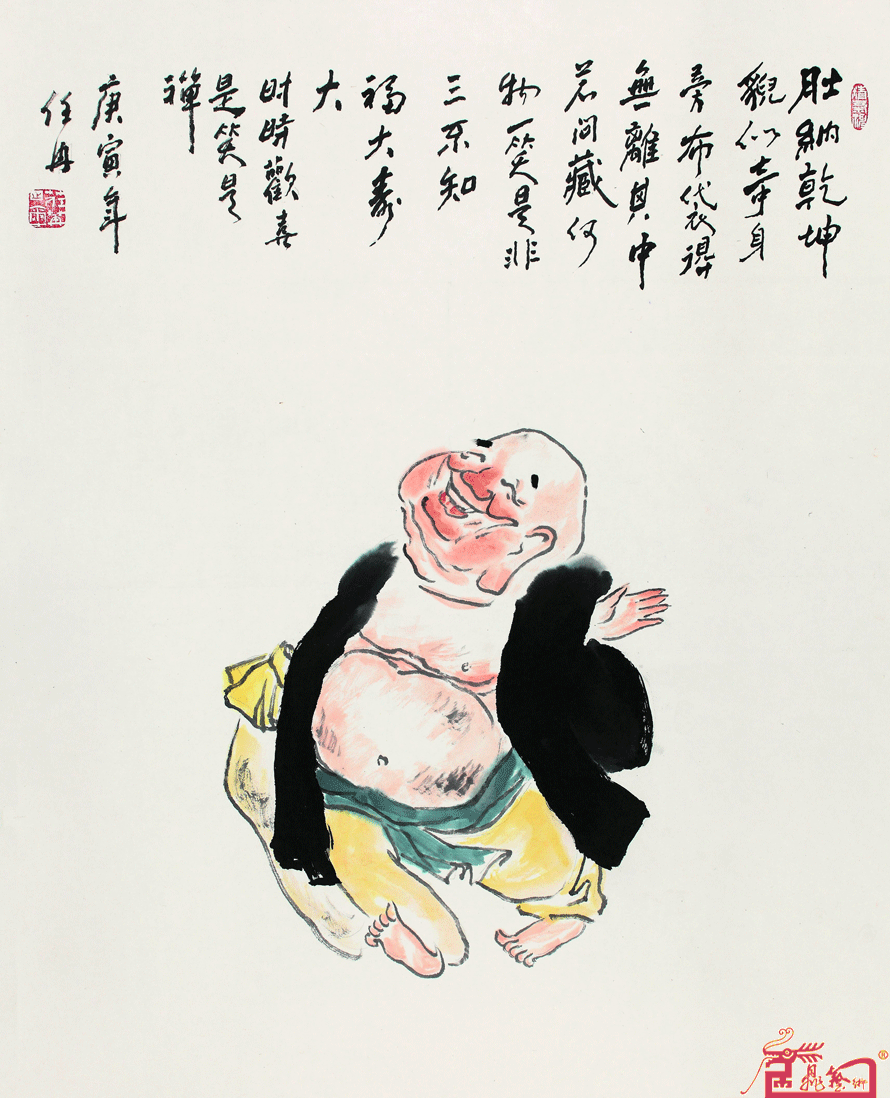 肚納乾坤
貌似奇身
旁布袋得
無離其中
若問藏何
物一笑是非
三不知
福大壽
大
时時歡喜
是笑是
禪
庚寅年
任冉